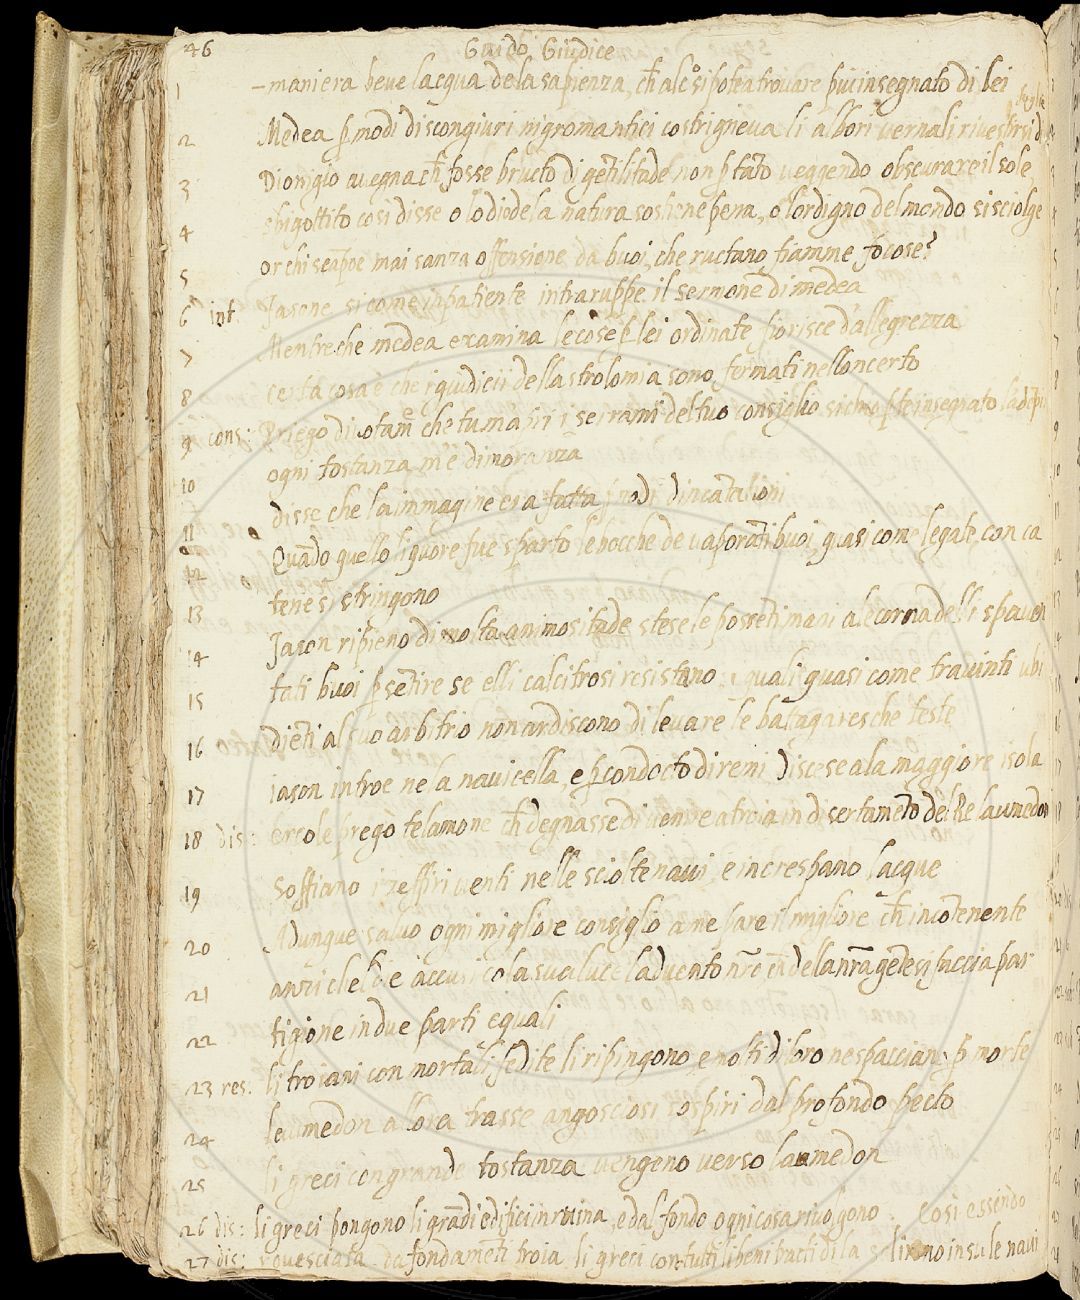 46 Guido Giudice
1 – maniera beve lacqua dela sapienza, ch alc si potea trovare piu insegnato di lei
2 Medea p modi di scongiuri nigromantici costrigneva li albori vernali
3 Dionigio avegna ch fosse bructo di getilitade non p tato veggendo obscurare il sole
4 sbigottito cosi disse o lo dio dela natura sostiene pena, o lordigno del mondo si sciolge
5 or chi scapoe mai sanza offensione da buoi, che ructano fiamme focose?
6 int. Jasone si come inpatiente intraruppe il sermone di medea
7 Mentre che medea examina le cose p lei ordinate fiorisce dallegrezza
8 certa cosa e che i giudicii della strolomia sono fermati nelloncerto
9 cons: Priego divotam che tu ma i serrami del tuo consiglio
10 ogni tostanza m'e dimoranza
11 disse che la inmagine era fatta p modi dincatationi
12 Quado quello liquore fue sparto le bocche de vaporati buoi, quasi come legate con ca
13 tene si stringono
14 Jason ripieno di molta animositade stese le possenti mani ale corna delli spaven
15 tati buoi p setire se elli calcitrosi resistano i quali quasi come travinti ubi
16 dieti al suo arbitrio non ardiscono di levare le teste
17 iason introe ne la navicella, e p condocto di remi discese ala maggiore isola
18 dis: Ercole prego telamone ch degnasse di venire a troia in disertameto del Re laumedon
19 Soffiano i zeffiri venti nelle sciolte navi, e increspano lacque
20 Adunque salvo ogni migliore consiglio a me pare il migliore ch incotenente
21 anzi chel die accusi cola sua luce ladvento nro ch dela nra gete si faccia par-
22 tigione in due parti equali
23 res: li troiani con mortali fedite li ripingono, e molti di loro ne spacciano p morte
24 laumedon allora trasse angosciosi sospiri dal profondo pecto
25 li greci con grande tostanza vengeno verso laumedon
26 dis: li greci pongono li gradi edificii in ruina, e dal fondo ogni cosa rivolgono Cosi essendo
27 dis: rovesciata da fondameti troia li greci con tutti li beni tracti di la salirono in su le navi